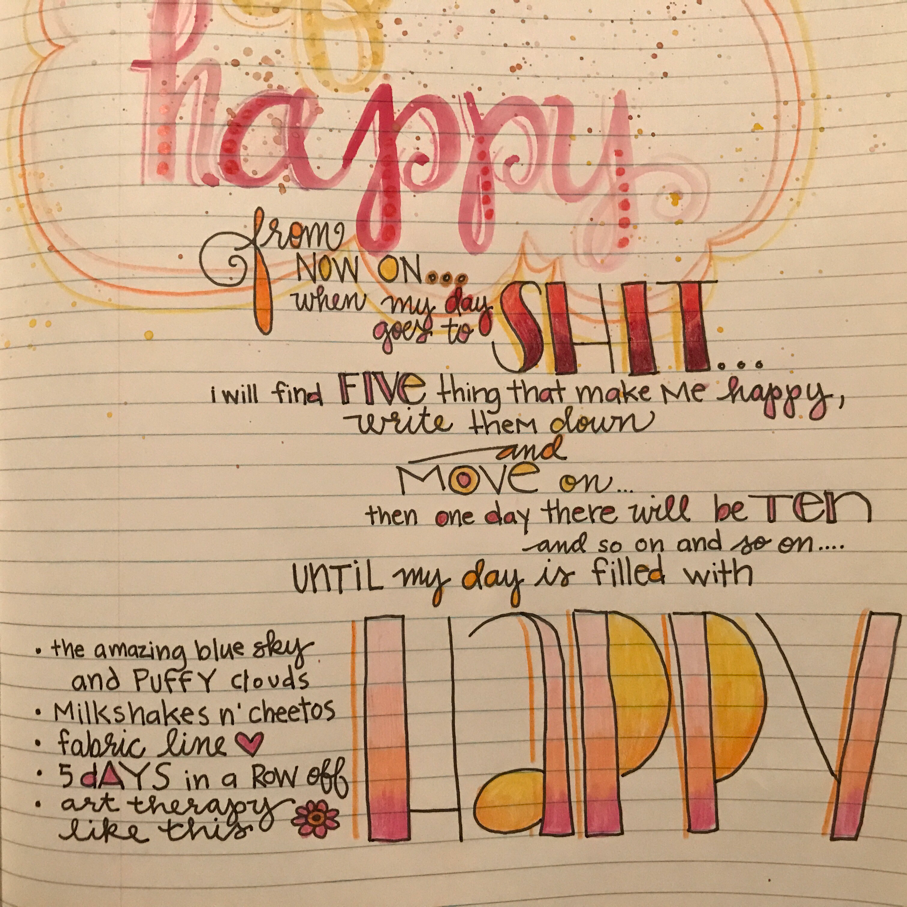 happy
from
NOW ON...
when my day
goes to SHIT...
i will find FIVE thing that make Me happy,
write them down
and
MOVE on...
then one day there will be Ten
and so on and so on....
UNTiL my day is filled with
HaPPY
• the amazing blue sky
and PUFFY clouds
• Milkshakes n' cheetos
• fabric line ♥
• 5 dAYS in a Row off
• art therapy
like this